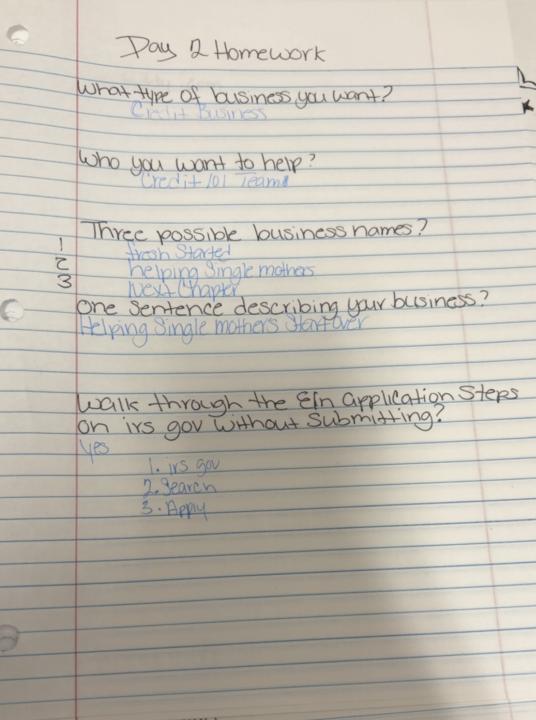 Day 2 Homework
What type of business you want?
Credit Business
Who you want to help?
Credit 101 Team
Three possible business names?
1 fresh Started
2 helping Single mothers
3 Next Chapter
One Sentence describing your business?
Helping Single mothers Start over
Walk through the Ein application Steps
on irs gov Without Submitting?
Yes
1. irs gov
2. Search
3. Apply